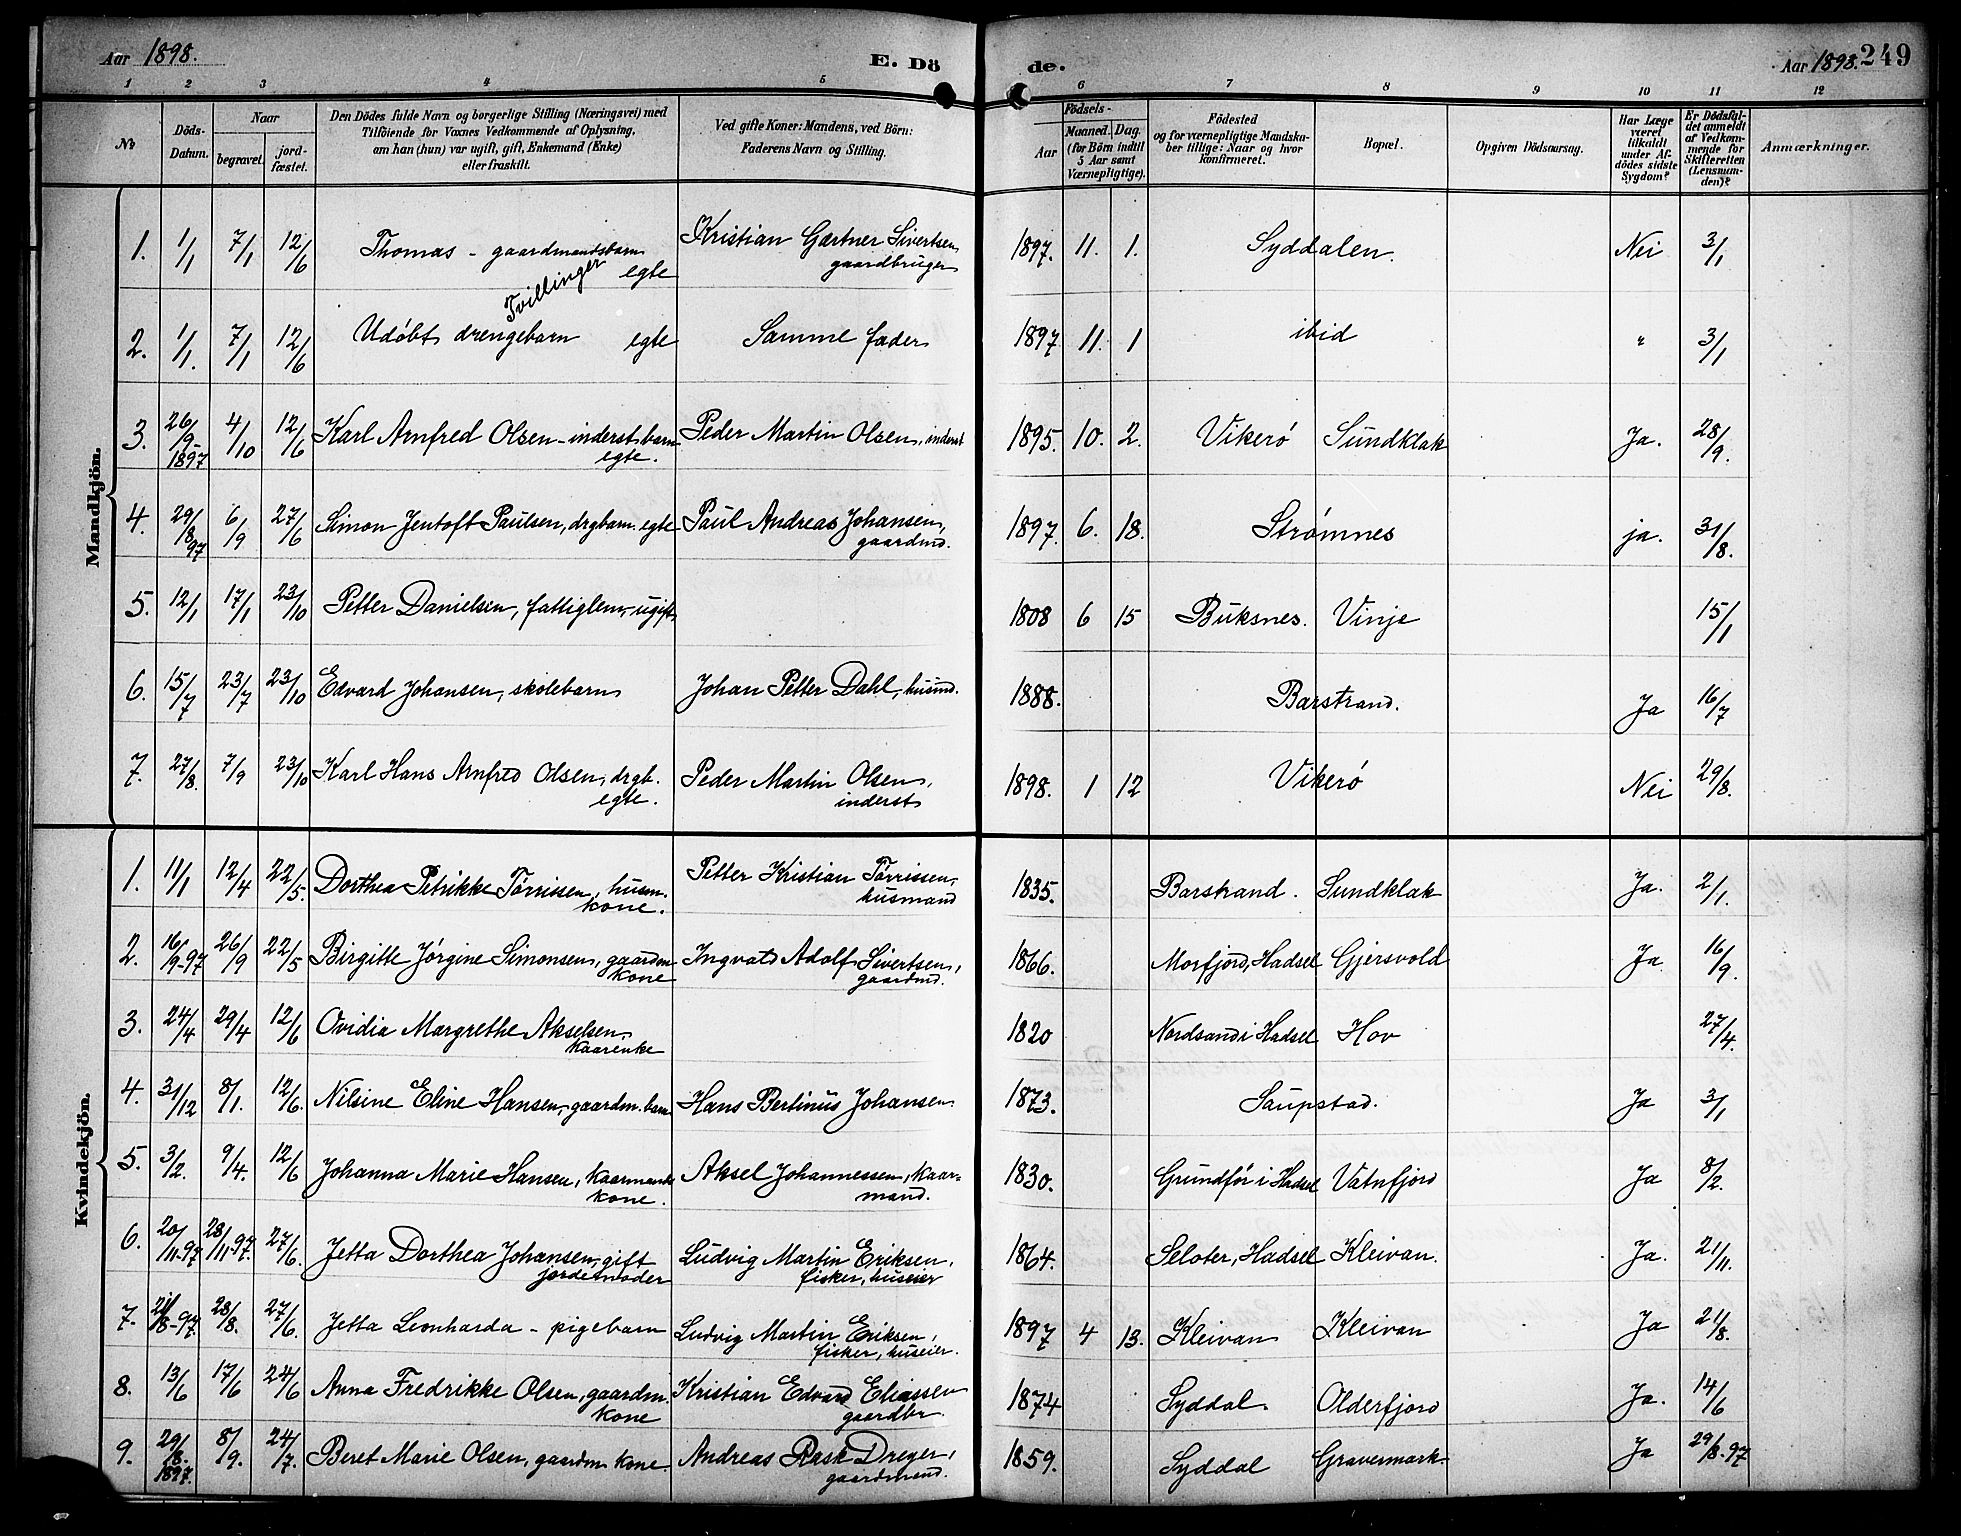 Aar 1898. E. Dö de. Aar 1898. 249
1 2 3 4 5 6 7 8 9 10 11 12
No
Döds-Datum.
Naar
begravet. jordfæstet.
Den Dödes fulde Navn og borgerlige Stilling (Næringsvei) med
Tilföiende for Voxnes Vedkommende af Oplysning,
om han (hun) var ugift, gift, Enkemand (Enke)
eller fraskilt.
Ved gifte Koner: Mandens, ved Börn:
Faderens Navn og Stilling.
Födsels-
Aar Maaned. Dag.
(for Börn indtil
5 Aar samt
Værnepligtige).
Födested
og for værnepligtige Mandska-
ber tillige: Naar og hvor
konfirmeret.
Bopæl.
Opgiven Dödsaarsag.
Har Læge
været
tilkaldt
under Af-
dödes sidste
Sygdom?
Er Dödsfal-
det anmeldt
af Vedkom-
mende for
Skifteretten
(Lensman-
den)?
Anmærkninger.
Mandkjön.
1. 1/1 7/1 12/6 Thomas - gaardmandsbarn Kristian Gærtner Sivertsen 1897. 11. 1. Syddalen. Nei 3/1
egte gaardbruger
Tvillinger
2. 1/1. 7/1 12/6 Udøbt drengebarn egte Samme fader 1897 11. 1 ibid " 3/1
3. 26/9-1897 4/10 12/6 Karl Arnfred Olsen - inderst barn Peder Martin Olsen, inderst 1895. 10. 2. Vikerø Sundklak Ja. 28/9.
egte.
4. 29/8 97 6/9 27/6 Simon Jentoft Paulsen, drgbarn. egte Paul Andreas Johansen, 1897. 6. 18. Strømnes ja. 31/8.
gaardmd.
5. 12/1 17/1 23/10 Petter Danielsen, fattiglem, ugift 1808 6 15 Buksnes. Vinje 15/1
6. 15/7 23/7 23/10 Edvard Johansen, skolebarn Johan Petter Dahl, husmd. 1888. Barstrand. Ja 16/7
7. 27/8. 7/9 23/10 Karl Hans Arnfred Olsen, drgb. Peder Martin Olsen, 1898. 1 12 Vikerø Nei 29/8.
egte. inderst
Kvindekjön.
1. 11/1 12/4 22/5. Dorthea Petrikke Tørrissen, husm. Petter Kristian Tørrissen, 1835. Barstrand. Sundklak Ja. 2/1.
kone. husmand
2. 16/9-97 26/9 22/5 Birgitte Jørgine Simonsen, gaardm Ingvald Adolf Sivertsen, 1866. Morfjord, Hadsel Gjersvold Ja 16/9.
kone gaardmd.
3. 24/4 29/4 12/6 Ovidia Margrethe Akselsen, 1820 Nordsand i Hadsel Hov 27/4.
kaarenke
4. 31/12 8/1. 12/6. Nilsine Eline Hansen, gaardm. barn Hans Bertinus Johansen 1873. Saupstad. Ja 3/1
5. 3/2. 9/4. 12/6 Johanna Marie Hansen, kaarmands Aksel Johannessen, kaar- 1830. Grundför i Hadsel Vatnfjord Ja 8/2.
kone. mand.
6. 20/11-97 28/11-97. 27/6. Jetta Dorthea Johansen, gift Ludvig Martin Eriksen, 1864. Seloter, Hadsel Kleivan. Ja. 21/11.
jordemoder fisker, huseier
7. 21/8-97. 28/8. 27/6. Jetta Leonharda - pigebarn Ludvig Martin Eriksen, 1897 4 13. Kleivan Kleivan Ja 21/8.
fisker, huseier.
8. 13/6 17/6 24/6 Anna Fredrikke Olsen, gaardm. Kristian Edvard Eliassen 1874 Syddal. Olderfjord Ja. 14/6
kone gaardbr.
9. 29/8. 1897. 8/9. 24/7. Beret Marie Olsen, gaardm kone. Andreas Rask Dreyer, 1859. Syddal Gravermark- Ja 29/8-97
gaardmand.